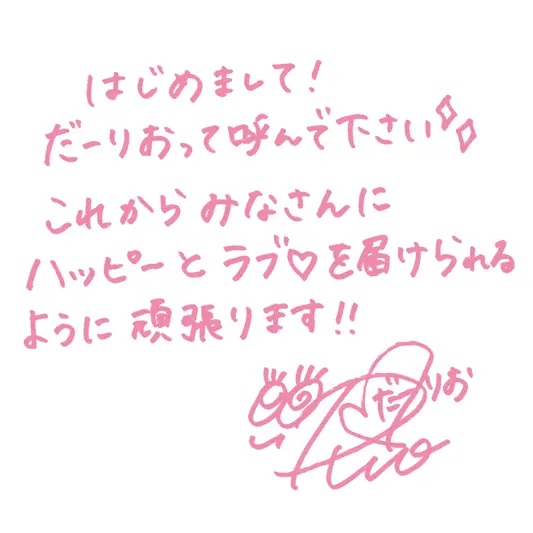 はじめまして!
だーりおって呼んで下さい
これから みなさんに
ハッピーと ラブ♡を届けられる
ように 頑張ります!!
だーりお